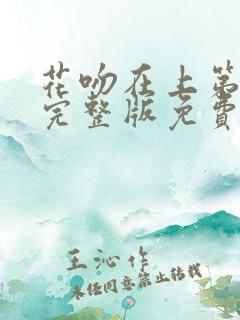 花吻在上第
完整版免费
王沁作
未经同意禁止转载